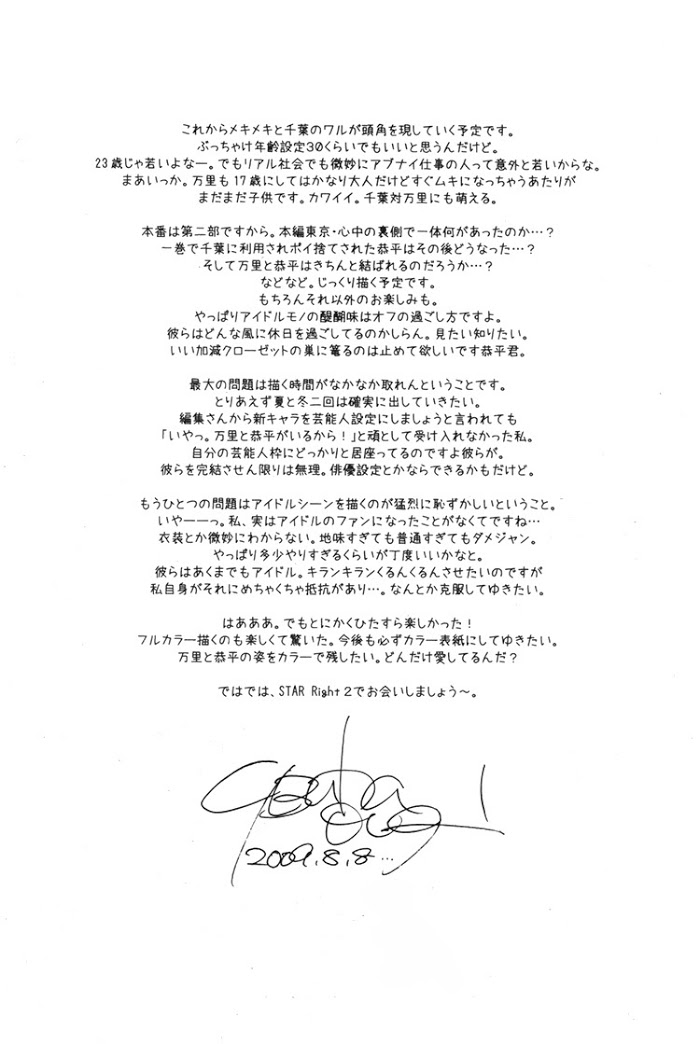 これからメキメキと千葉のワルが頭角を現していく予定です。
ぶっちゃけ年齢設定30くらいでもいいと思うんだけど。
23歳じゃ若いよなー。でもリアル社会でも微妙にアブナイ仕事の人って意外と若いからな。
まあいっか。万里も17歳にしてはかなり大人だけどすぐムキになっちゃうあたりが
まだまだ子供です。カワイイ。千葉対万里にも萌える。
本番は第二部ですから。本編東京・心中の裏側で一体何があったのか…？
一巻で千葉に利用されポイ捨てされた恭平はその後どうなった…？
そして万里と恭平はきちんと結ばれるのだろうか…？
などなど。じっくり描く予定です。
もちろんそれ以外のお楽しみも。
やっぱりアイドルモノの醍醐味はオフの過ごし方ですよ。
彼らはどんな風に休日を過ごしてるのかしらん。見たい知りたい。
いい加減クローゼットの巣に篭るのは止めて欲しいです恭平君。
最大の問題は描く時間がなかなか取れんということです。
とりあえず夏と冬二回は確実に出していきたい。
編集さんから新キャラを芸能人設定にしましょうと言われても
「いやっ。万里と恭平がいるから！」と頑として受け入れなかった私。
自分の芸能人枠にどっかりと居座ってるのですよ彼らが。
彼らを完結させん限りは無理。俳優設定とかならできるかもだけど。
もうひとつの問題はアイドルシーンを描くのが猛烈に恥ずかしいということ。
いやーーっ。私、実はアイドルのファンになったことがなくてですね…
衣装とか微妙にわからない。地味すぎても普通すぎてもダメジャン。
やっぱり多少やりすぎるくらいが丁度いいかなと。
彼らはあくまでもアイドル。キランキランくるんくるんさせたいのですが
私自身がそれにめちゃくちゃ抵抗があり…。なんとか克服してゆきたい。
はあああ。でもとにかくひたすら楽しかった！
フルカラー描くのも楽しくて驚いた。今後も必ずカラー表紙にしてゆきたい。
万里と恭平の姿をカラーで残したい。どんだけ愛してるんだ？
ではでは、STAR Right 2でお会いしましょう～。
2009.8.8…